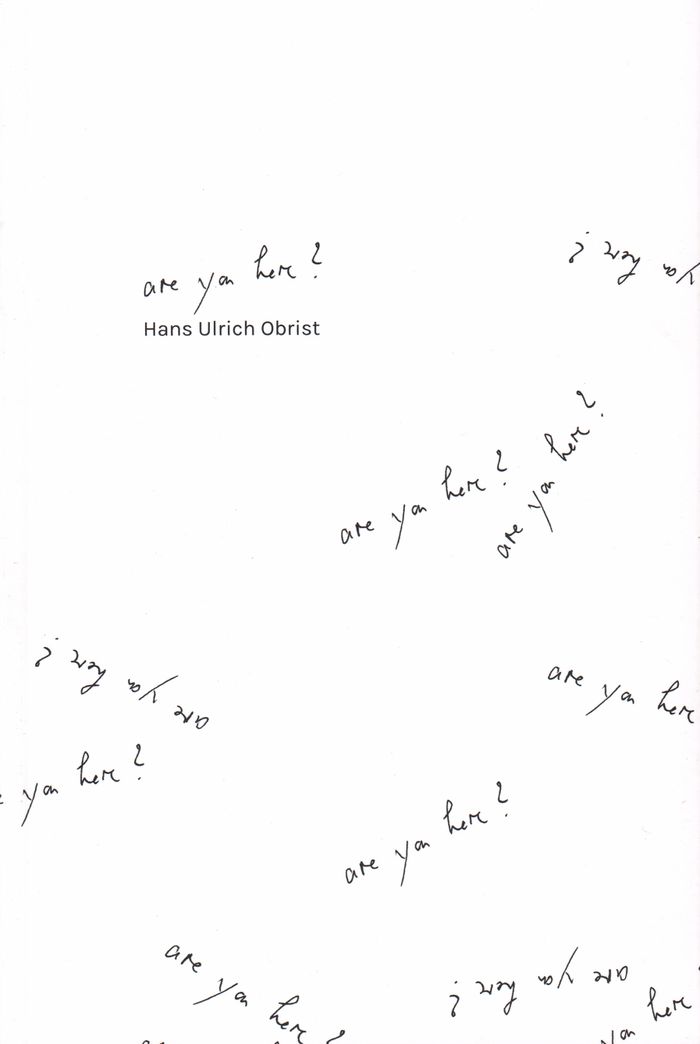 are you here?
Hans Ulrich Obrist
here?
are you here?
are you here?
are you here?
are you here
you here?
are you here?
are you here?
are you here?
you here